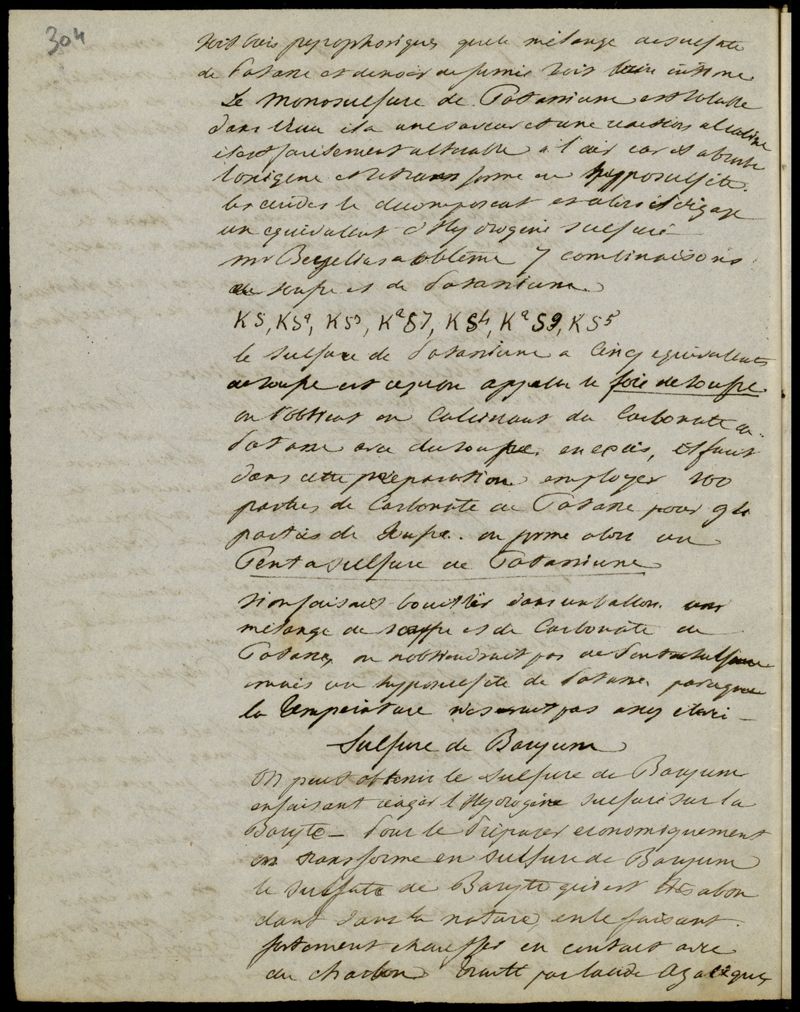 304
soit bois pyrophorique, que le mélange de sulfate
de Potasse et de noir de fumée soit bien intime
Le Monosulfure de Potassium est soluble
dans l'eau il a une saveur et une reaction alcaline
il est facilement alterable a l'air car il absorbe
loxigene et se transforme en hypposulfite.
les acides le decomposent et alors il dégage
un equivalent d'Hydrogene sulfuré
mr Berzelius a obtenu 7 combinaisons
de soufre et de Potassium
KS, KS², KS³, K²S7, KS4, K²S9, KS5
le sulfure de Potassium a Cinq equivalents
de soufre est ce qu'on appelle le foie de soufre
on l'obtient en Calcinant du Carbonate de
Potasse avec du soufre en excès, il faut
dans cette préparation employer 100
parties de Carbonate de Potasse pour 94
parties de soufre. on forme alors un
Pentasulfure de Potassium
si on faisait bouillir dans un ballon un
mélange de soufre et de Carbonate de
Potasse, on n'obtiendrait pas de Pentasulfure
mais un hypposulfite de Potasse parceque
la température ne serait pas assez élevée
Sulfure de Baryum
On peut obtenir le sulfure de Baryum
en faisant réagir l'Hydrogène sulfuré sur la
Baryte – Pour le Préparer economiquement
on transforme en sulfure de Baryum
le sulfate de Baryte qui est très abon
dant dans la nature, en le faisant
fortement chauffer en contact avec
du charbon Traité par l'acide Azotique,